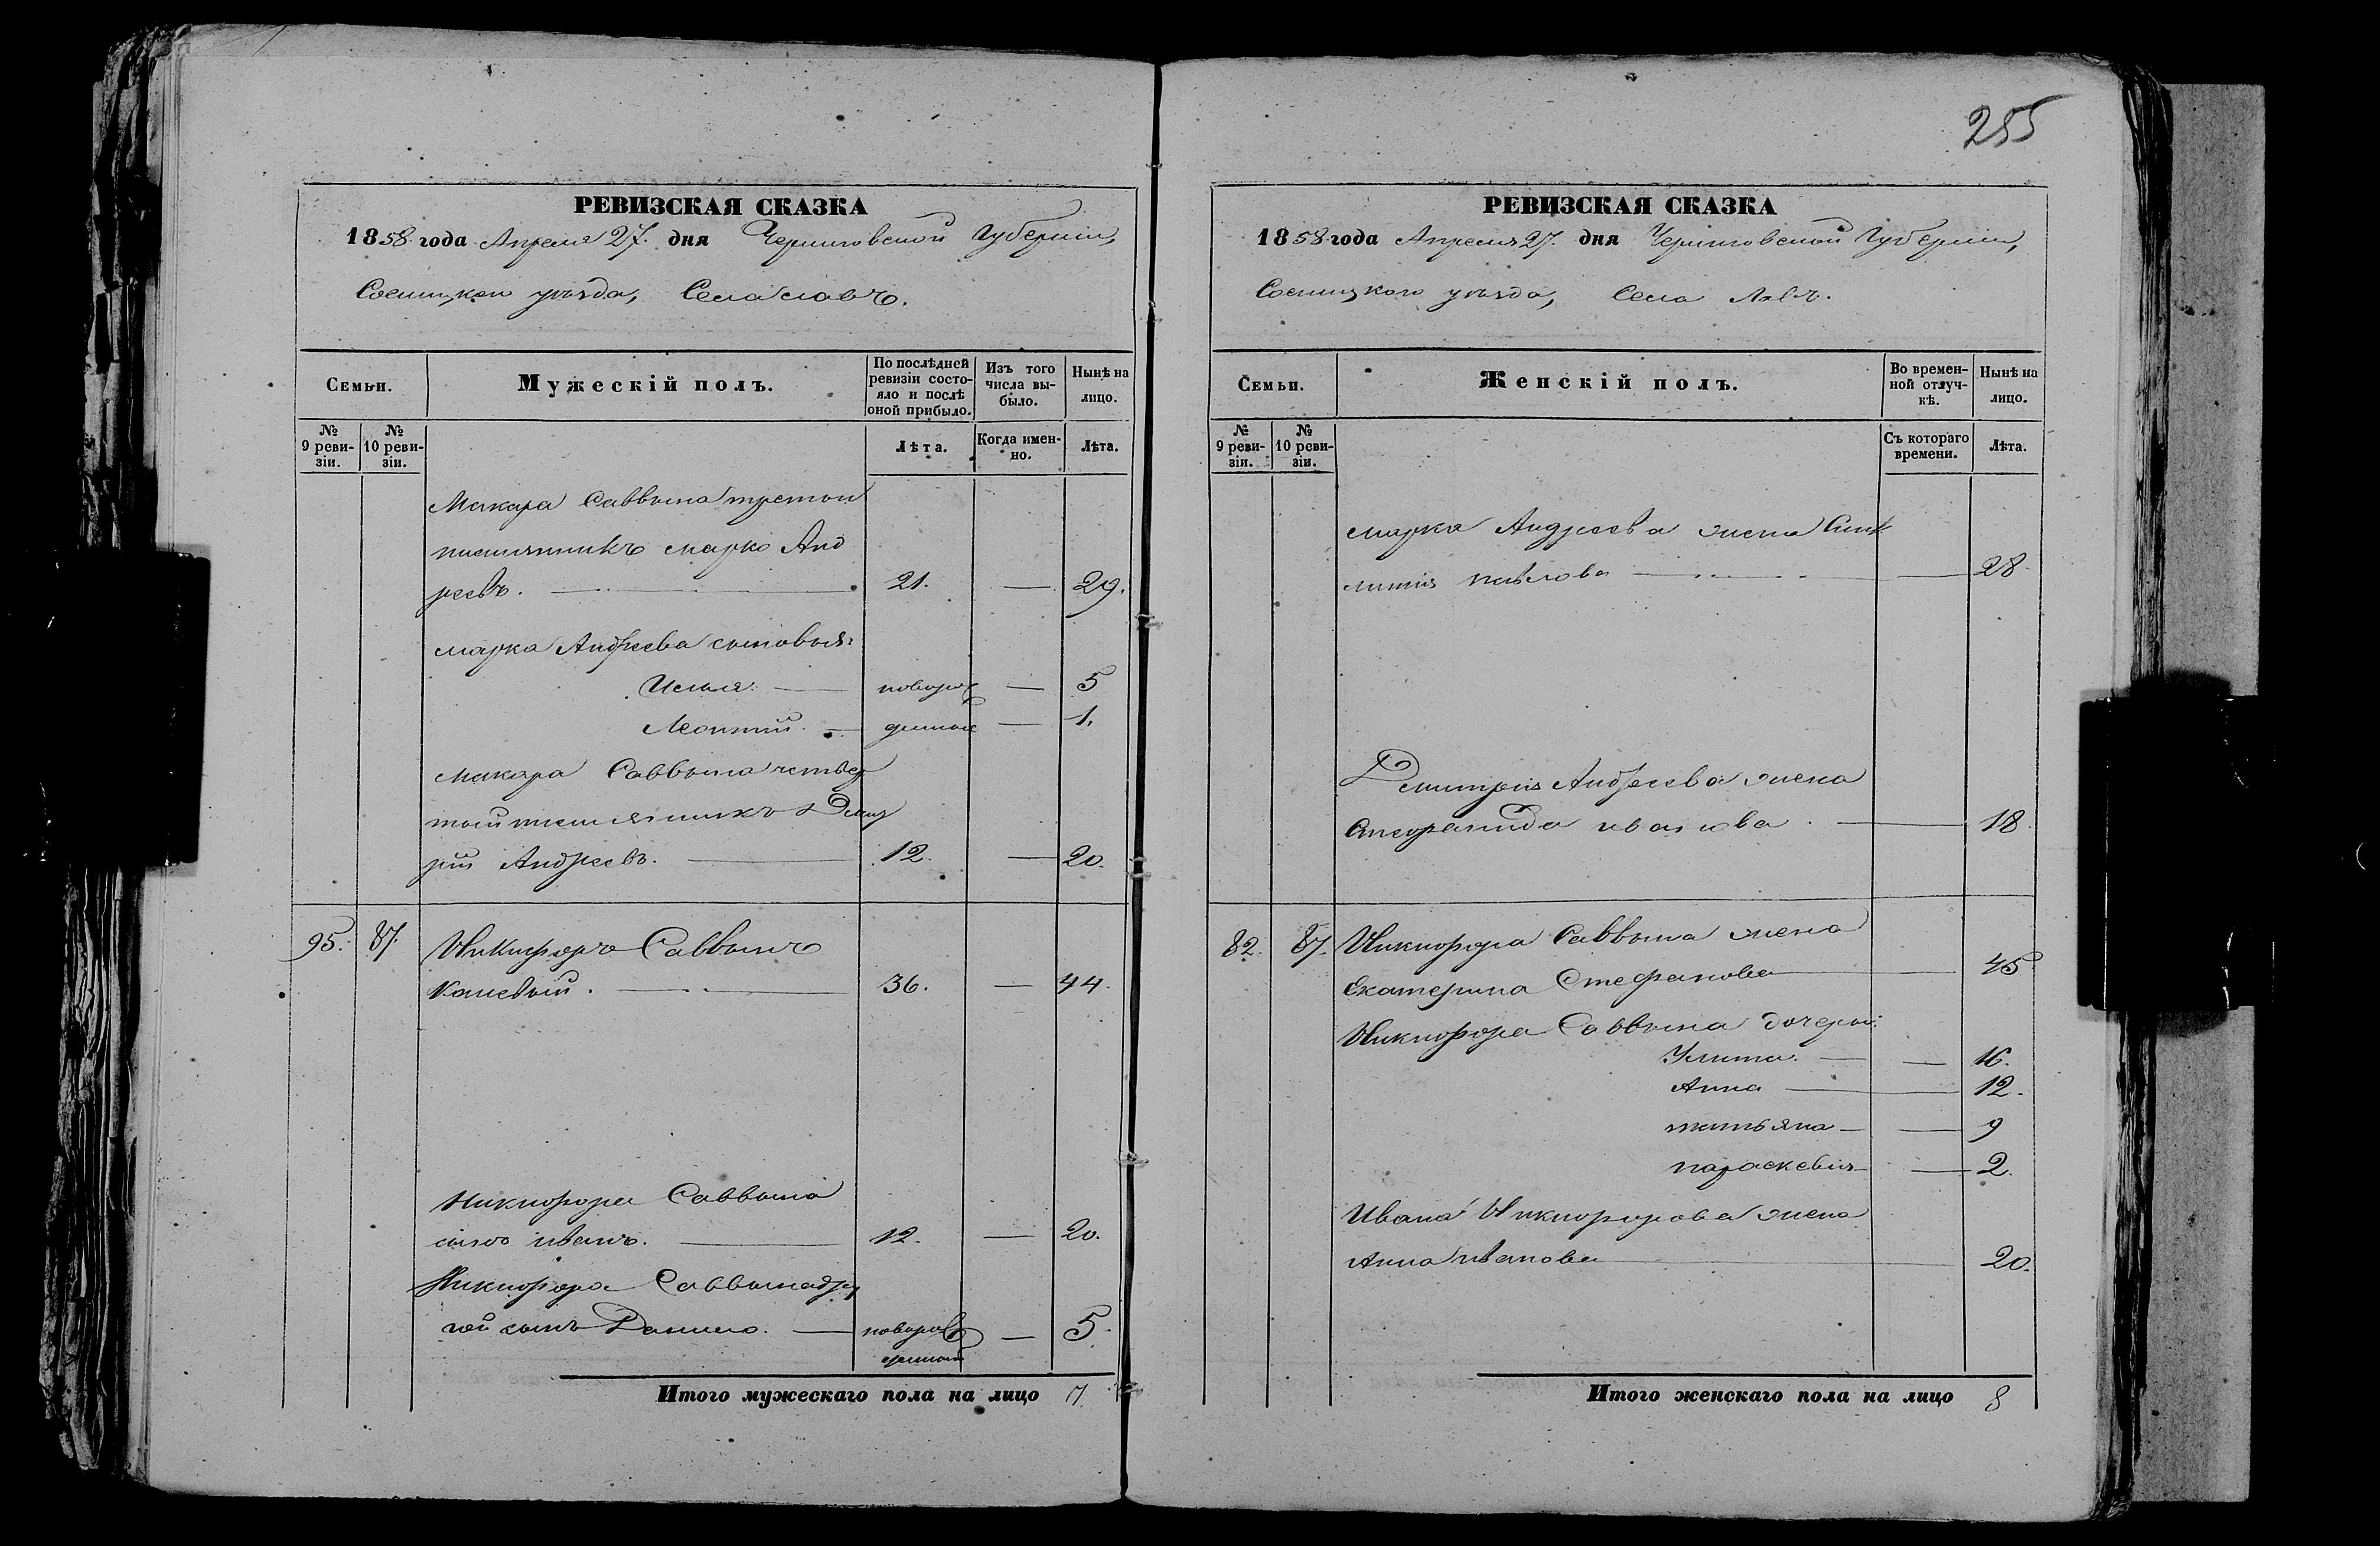 255
РЕВИЗСКАЯ СКАЗКА
1858 года Апреля 27. дня Черниговской Губерніи,
Сосницкого уезда, Села Лавъ.
Семьи.
Мужескій полъ.
По послѣдней ревизіи состояло и послѣ оной прибыло.
Изъ того числа выбыло.
Нынѣ на лицо.
№ 9 ревизіи.
№ 10 ревизіи.
Лѣта.
Когда именно.
Лѣта.
Макара Саввина третий
племянникъ Марко Анд
реевъ. 21. — 29.
Марка Андреева сыновья:
Илья. — новорож — 5
Леонтий. — денные — 1.
Макара Саввина четвер
тый племянникъ Дмит
рій Андреевъ. 12. — 20.
95. 87. Никифоръ Саввинъ
Каневый. 36. — 44.
Никифора Саввина
сынъ Иванъ. 12. — 20.
Никифора Саввина дру
гой сынъ Данило. — новорож — 5.
денный
Итого мужескаго пола на лицо 7
РЕВИЗСКАЯ СКАЗКА
1858 года Апреля 27. дня Черниговской Губерніи,
Сосницкого уезда, Села Лавъ.
Семьи.
Женскій полъ.
Во временной отлучкѣ.
Нынѣ на лицо.
№ 9 ревизіи.
№ 10 ревизіи.
Съ котораго времени.
Лѣта.
Марка Андреева жена
Павлова — 28
Дмитрия Андреева жена
Иванова. — 18
82. 87. Никифора Саввина жена
Екатерина Стефанова — 45
Никифора Саввина дочери:
Улита. — — 16.
Анна — 12.
Татьяна — — 9
Параскевия — 2.
Ивана Никифорова жена
Анна Иванова — 20.
Итого женскаго пола на лицо 8